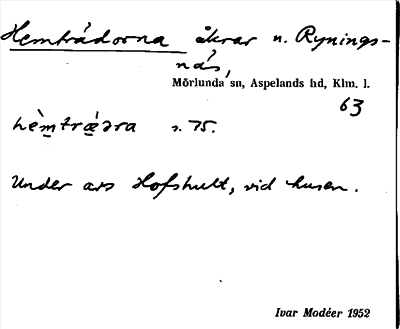 Hemträdorna åkrar n. Rynings-
näs,
Mörlunda sn, Aspelands hd, Klm. l.
63
hèmtræ̀ara s. 75.
Under ars Hofshult, vid husen.
Ivar Modéer 1952